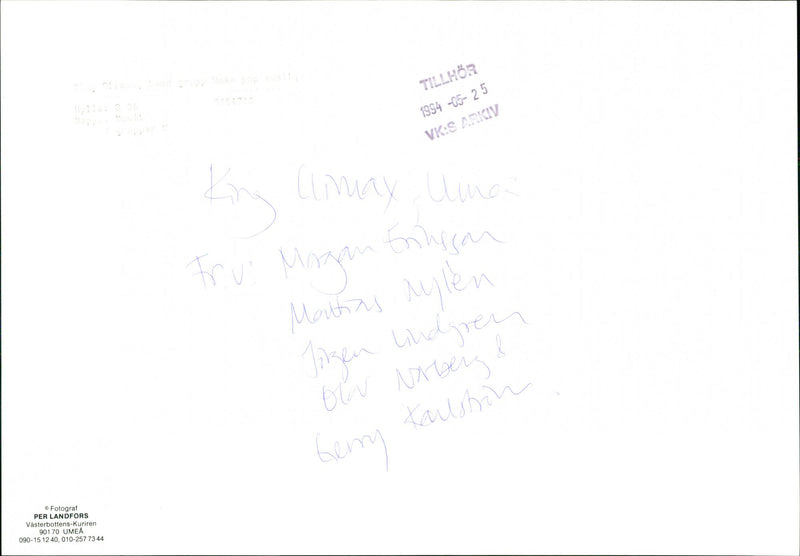 TILLHÖR
1994 -05- 25
VK:S ARKIV
King Climax, Umeå
Fr.v: Morgan Eriksson
Mattias Nylén
Jörgen Lindgren
Olov Norberg &
Gerry Karlström.
© Fotograf
PER LANDFORS
Västerbottens-Kuriren
901 70 UMEÅ
090-15 12 40, 010-257 73 44